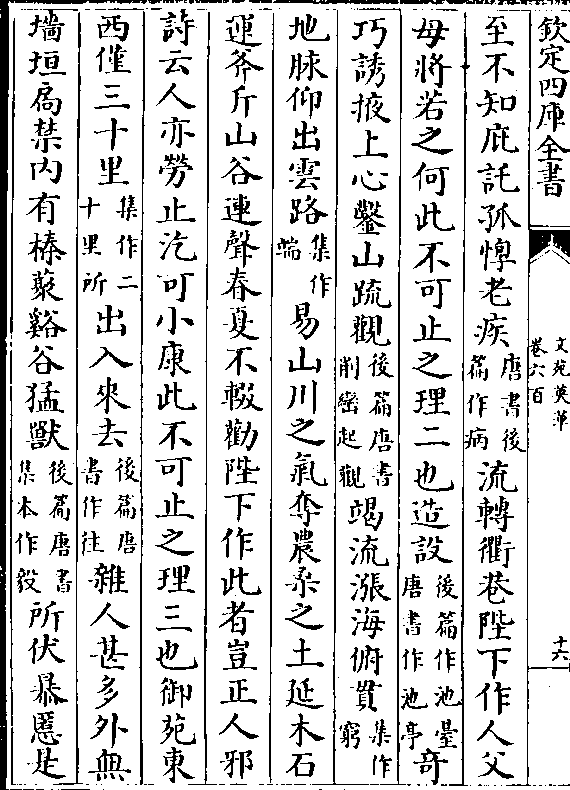 欽定四庫全書
文苑英華
卷六百
十六
至不知庇託孤惸老疾唐書後篇作病流轉衢巷陛下作人父
母將若之何此不可止之理二也造設後篇作池臺唐書作池亭奇
巧誘掖上心鑿山疏觀後篇唐書削巒起觀竭流漲海俯貫集作窮
地脉仰出雲路集作端易山川之氣奪農桑之土延木石
運斧斤山谷連聲春夏不輟勸陛下作此者豈正人邪
詩云人亦勞止汔可小康此不可止之理三也御苑東
西僅三十里集作二十里所出入來去後篇唐書作往雜人甚多外無
墻垣扃禁内有榛藂谿谷猛獸後篇唐書集本作毅所伏暴慝是